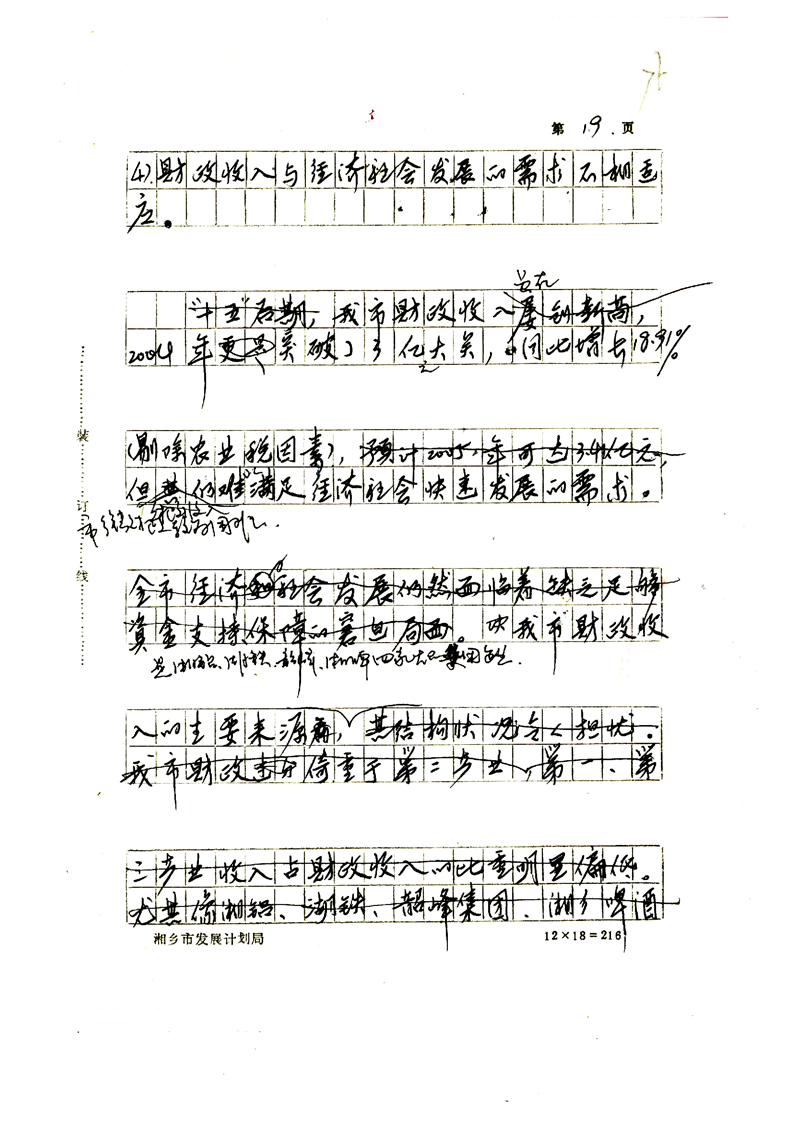 第 19 页
4).财政收入与经济社会发展的需求不相适
应。
"十五"后期，我市财政收入屡创新高，
2004年更是突破了3亿大关，同比增长18.91%
(剔除农业税因素)，预计2005年可达3.41亿元，
但其仍难满足经济社会快速发展的需求。
全市经济和社会发展仍然面临着缺乏足够
资金支持保障的窘迫局面。从我市财政收
入的主要来源看，其结构状况令人担忧。
我市财政十分倚重于第二产业，第一、第
三产业收入占财政收入的比重明显偏低。
尤其像湘铝、湖铁、韶峰集团、湘乡啤酒
装
订
线
湘乡市发展计划局
12×18=216